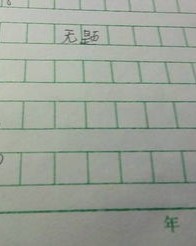 无题
年